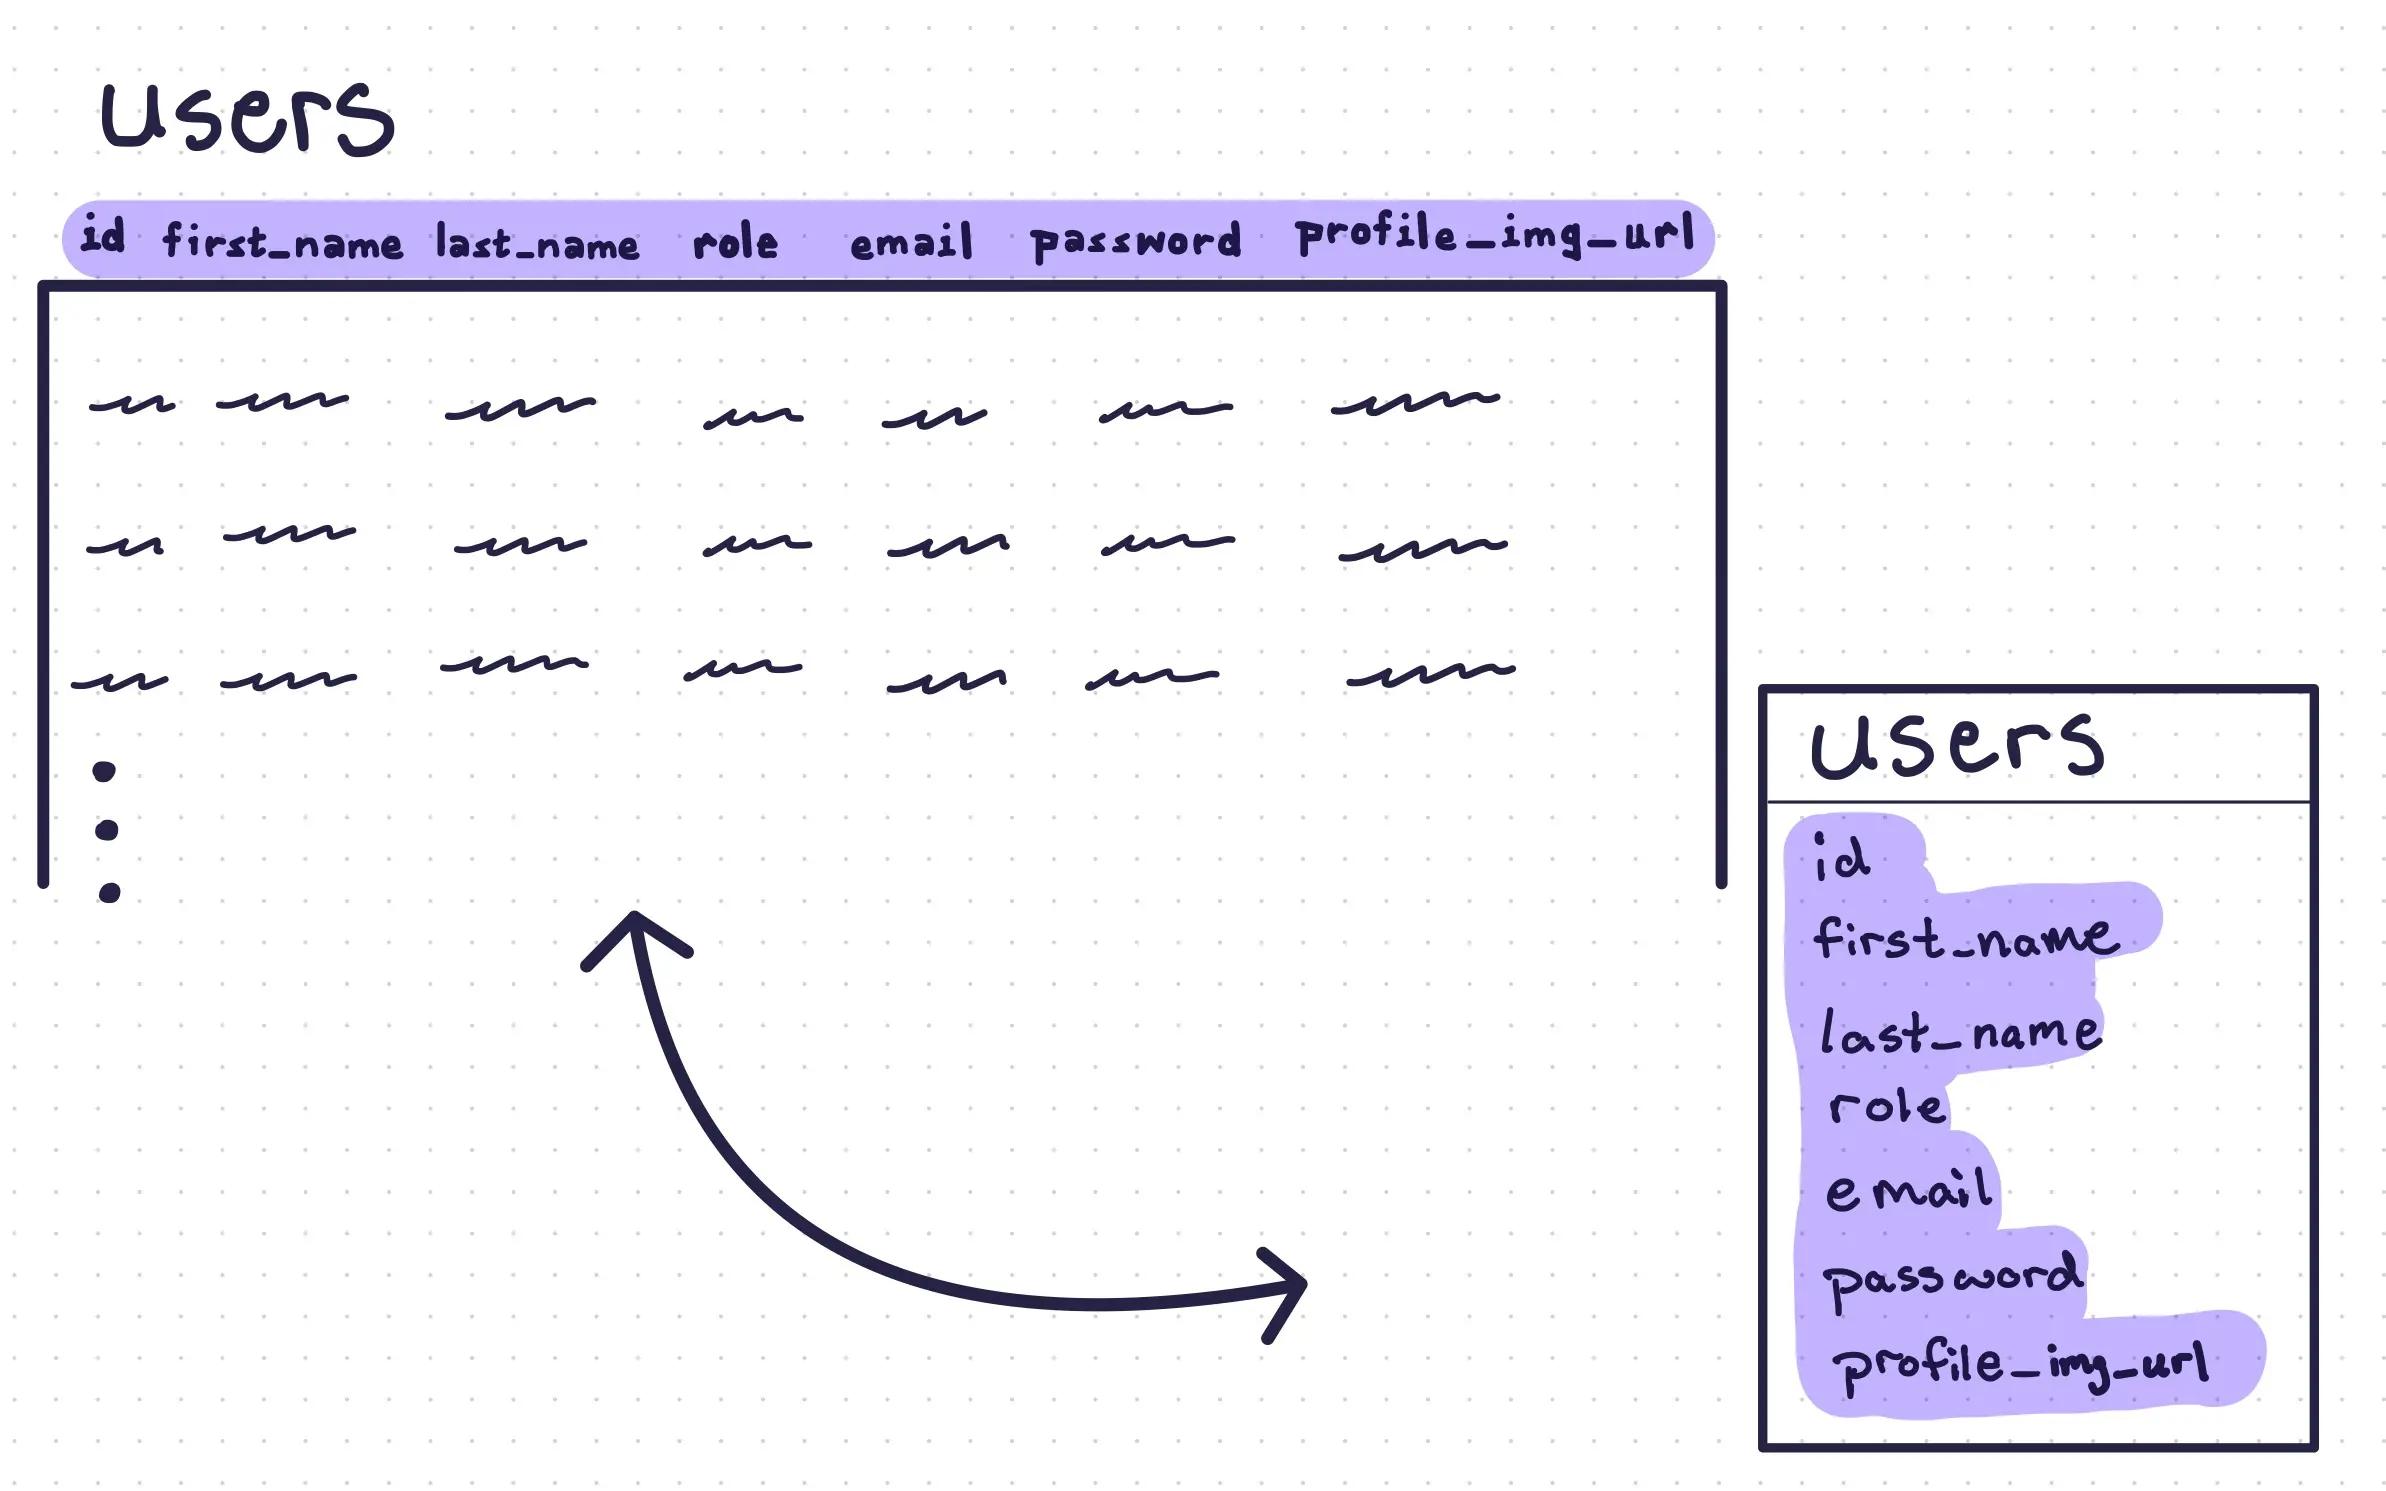 users
id first_name last_name role email password profile_img_url
users
id
first_name
last_name
role
email
password
profile_img_url